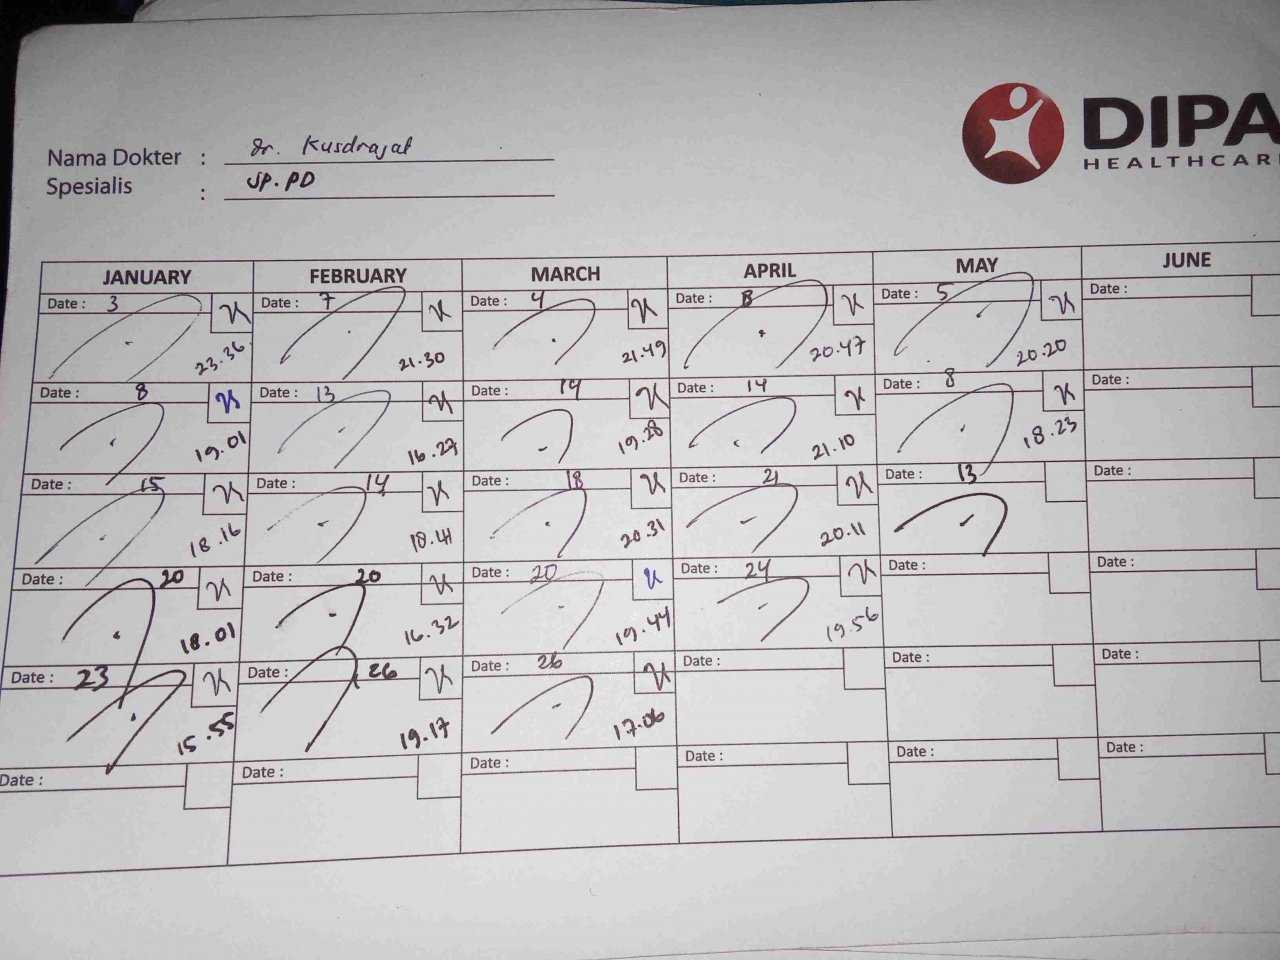 DIPA
HEALTHCAR
Nama Dokter : dr. Kusdrajat
Spesialis : Sp.PD
JANUARY FEBRUARY MARCH APRIL MAY JUNE
Date : 3 Date : 7 Date : 4 Date : Date : 5 Date :
23.36 21.30 21.49 20.47 20.20
Date : 8 Date : 13 Date : 14 Date : 14 Date : 8 Date :
19.01 16.27 19.28 21.10 18.23
Date : 15 Date : 14 Date : 18 Date : 21 Date : 13 Date :
18.16 18.41 20.31 20.11
Date : 20 Date : 20 Date : 20 Date : 24 Date : Date :
18.01 16.32 19.44 19.56
Date : 23 Date : 26 Date : 26 Date : Date : Date :
15.55 19.17 17.06
Date : Date : Date : Date : Date : Date :